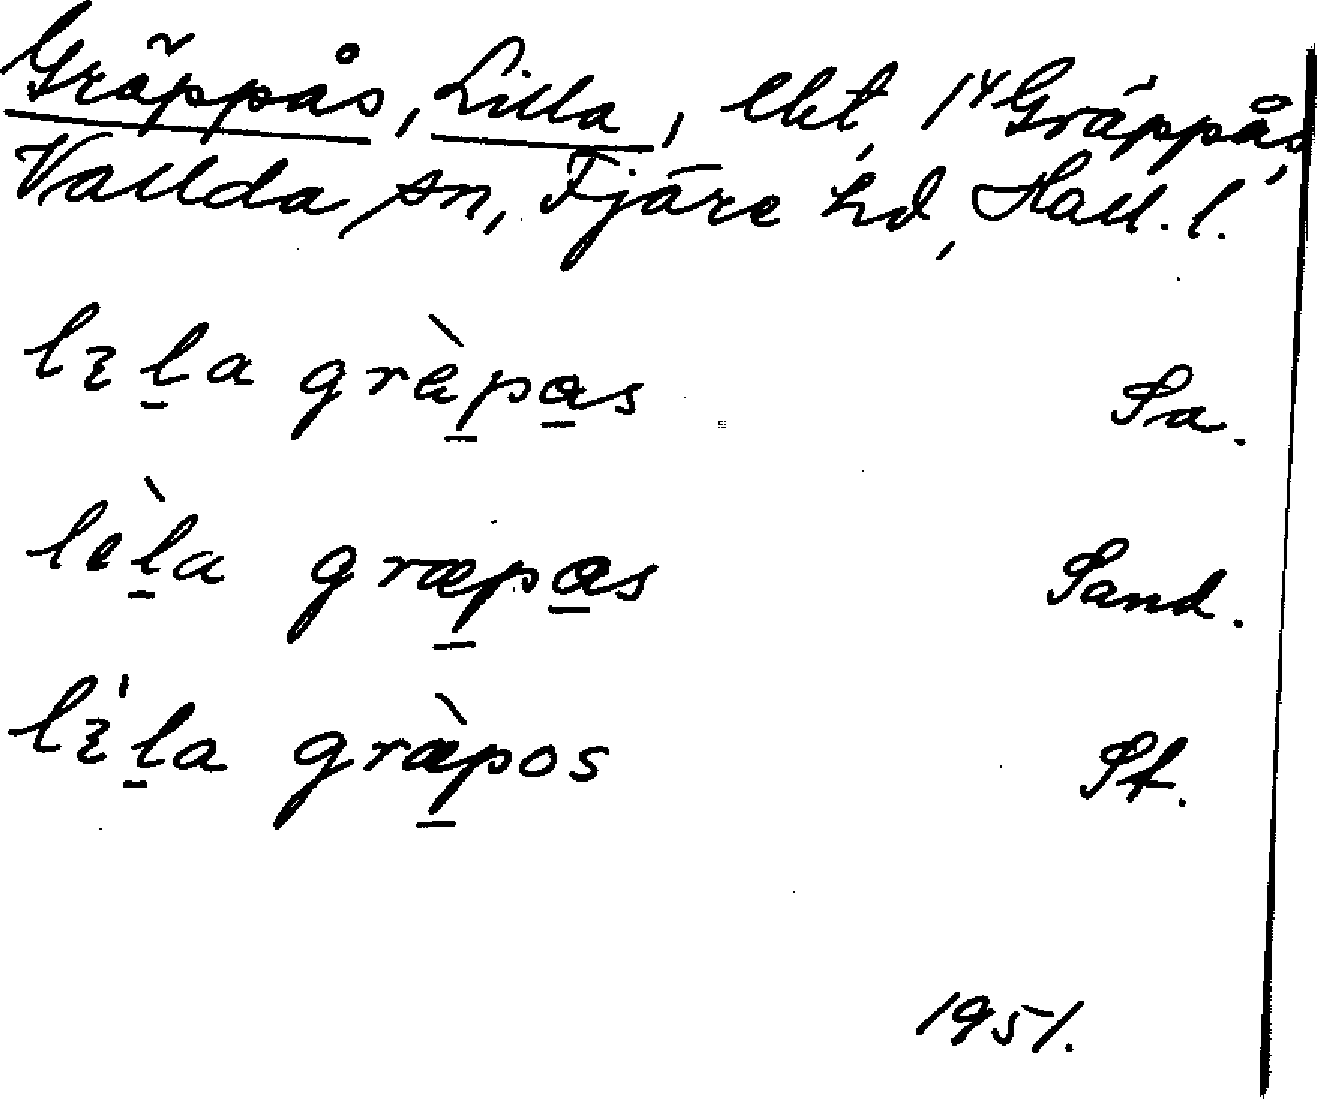 Gräppås, Lilla, lht, 1⁴ Gräppås,
Vallda sn, Fjäre hd, Hall. l.
lɩl̠a grèp̠a̠s Sa.
lèl̠a græp̠a̠s Sand.
lɩ́l̠a græ̀p̠os St.
1951.